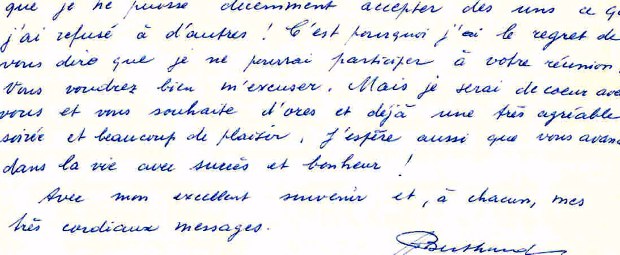 que je ne puisse décemment accepter des uns ce qu
j'ai refusé à d'autres ! C'est pourquoi j'ai le regret de
vous dire que je ne pourrai participer à votre réunion.
Vous voudrez bien m'excuser. Mais je serai de coeur ave
vous et vous souhaite d'ores et déjà une très agréable
soirée et beaucoup de plaisir. J'espère aussi que vous avanc
dans la vie avec succès et bonheur !
Avec mon excellent souvenir et, à chacun, mes
très cordiaux messages.